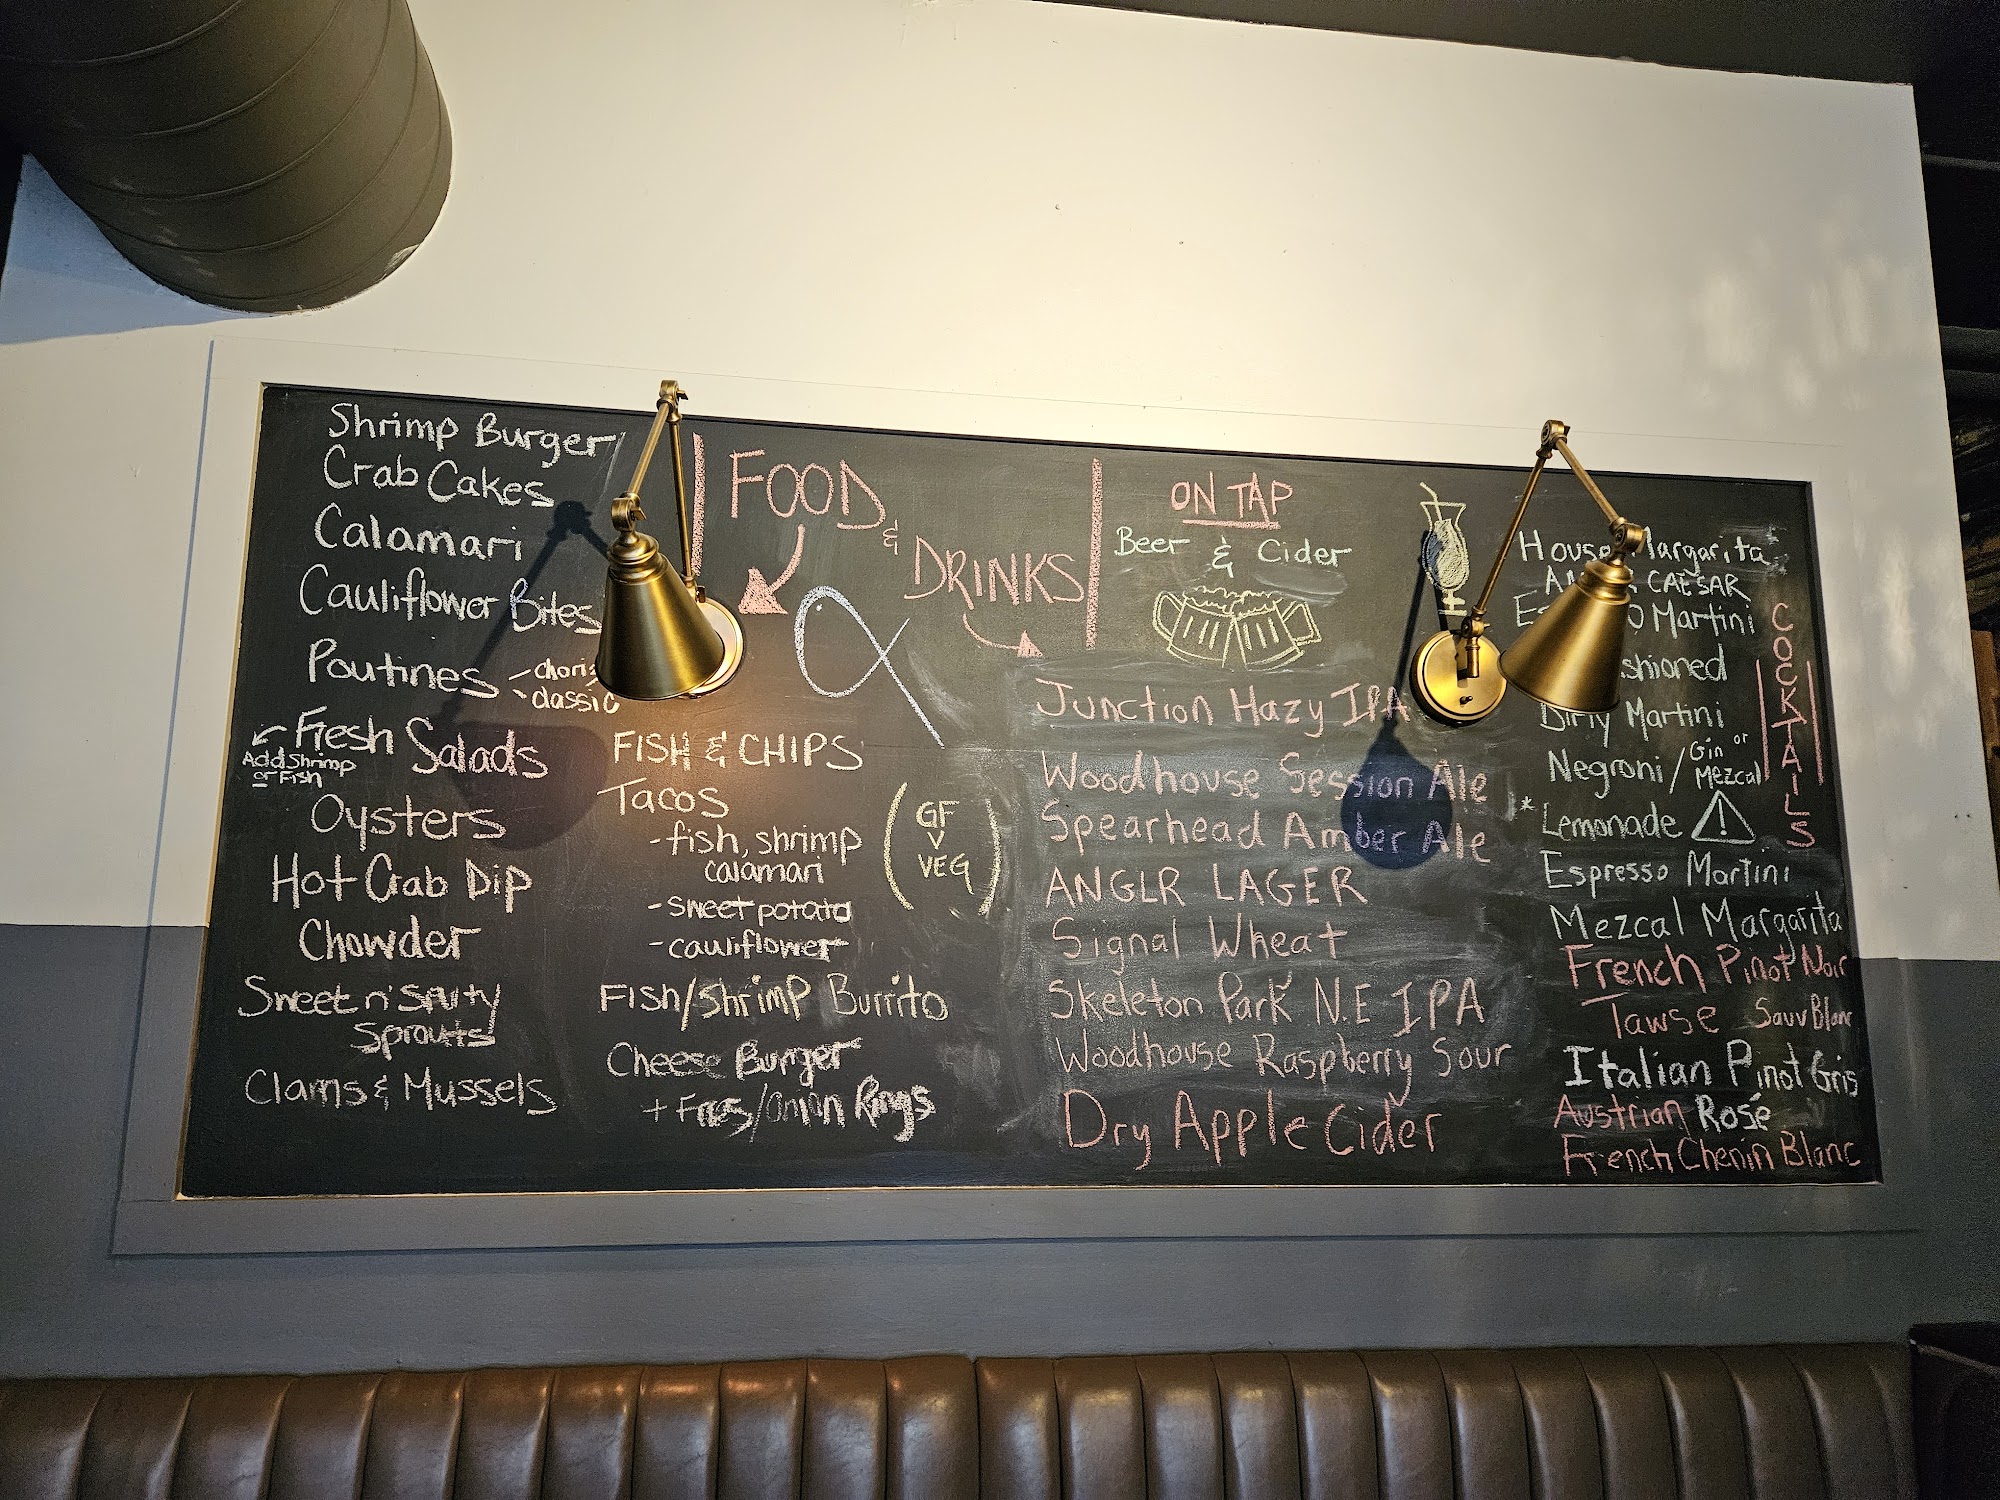 Shrimp Burger
Crab Cakes
Calamari
Cauliflower Bites
Poutines - chori
- classic
Fresh Salads
Add Shrimp
or Fish
Oysters
Hot Crab Dip
Chowder
Sweet n' Salty
Sprouts
Clams & Mussels
FOOD
&
DRINKS
FISH & CHIPS
Tacos
- fish, shrimp
calamari
- sweet potato
- cauliflower
GF
V
VEG
Fish/Shrimp Burrito
Cheese Burger
+ Fries/Onion Rings
ON TAP
Beer & Cider
Junction Hazy IPA
Woodhouse Session Ale
Spearhead Amber Ale
ANGLR LAGER
Signal Wheat
Skeleton Park N.E IPA
Woodhouse Raspberry Sour
Dry Apple Cider
COCKTAILS
House Margarita
CAESAR
Martini
shioned
Dirty Martini
Negroni / Gin or
Mezcal
* Lemonade !
Espresso Martini
Mezcal Margarita
French Pinot Noir
Tawse Sauv Blanc
Italian Pinot Gris
Austrian Rosé
French Chenin Blanc